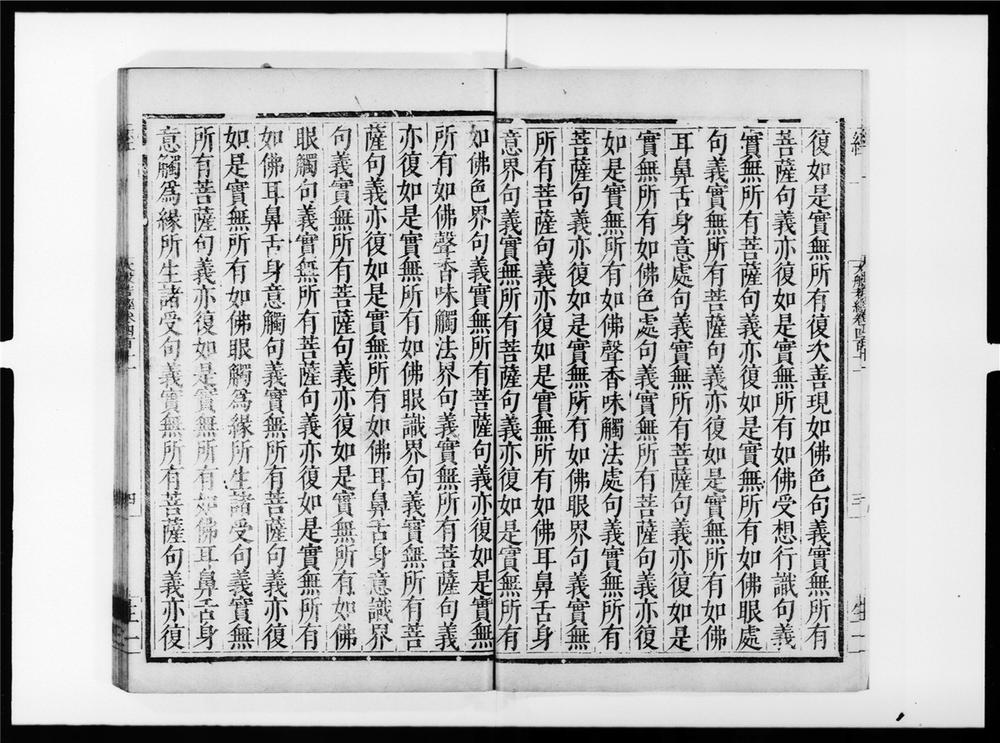 經 大般若經卷四百十一 三
復如是實無所有復次善現如佛色句義實無所有
菩薩句義亦復如是實無所有如佛受想行識句義
實無所有菩薩句義亦復如是實無所有如佛眼處
句義實無所有菩薩句義亦復如是實無所有如佛
耳鼻舌身意處句義實無所有菩薩句義亦復如是
實無所有如佛色處句義實無所有菩薩句義亦復
如是實無所有如佛聲香味觸法處句義實無所有
菩薩句義亦復如是實無所有如佛眼界句義實無
所有菩薩句義亦復如是實無所有如佛耳鼻舌身
意界句義實無所有菩薩句義亦復如是實無所有
如佛色界句義實無所有菩薩句義亦復如是實無
所有如佛聲香味觸法界句義實無所有菩薩句義
亦復如是實無所有如佛眼識界句義實無所有菩
薩句義亦復如是實無所有如佛耳鼻舌身意識界
句義實無所有菩薩句義亦復如是實無所有如佛
眼觸句義實無所有菩薩句義亦復如是實無所有
如佛耳鼻舌身意觸句義實無所有菩薩句義亦復
如是實無所有如佛眼觸爲緣所生諸受句義實無
所有菩薩句義亦復如是實無所有如佛耳鼻舌身
意觸爲緣所生諸受句義實無所有菩薩句義亦復
四